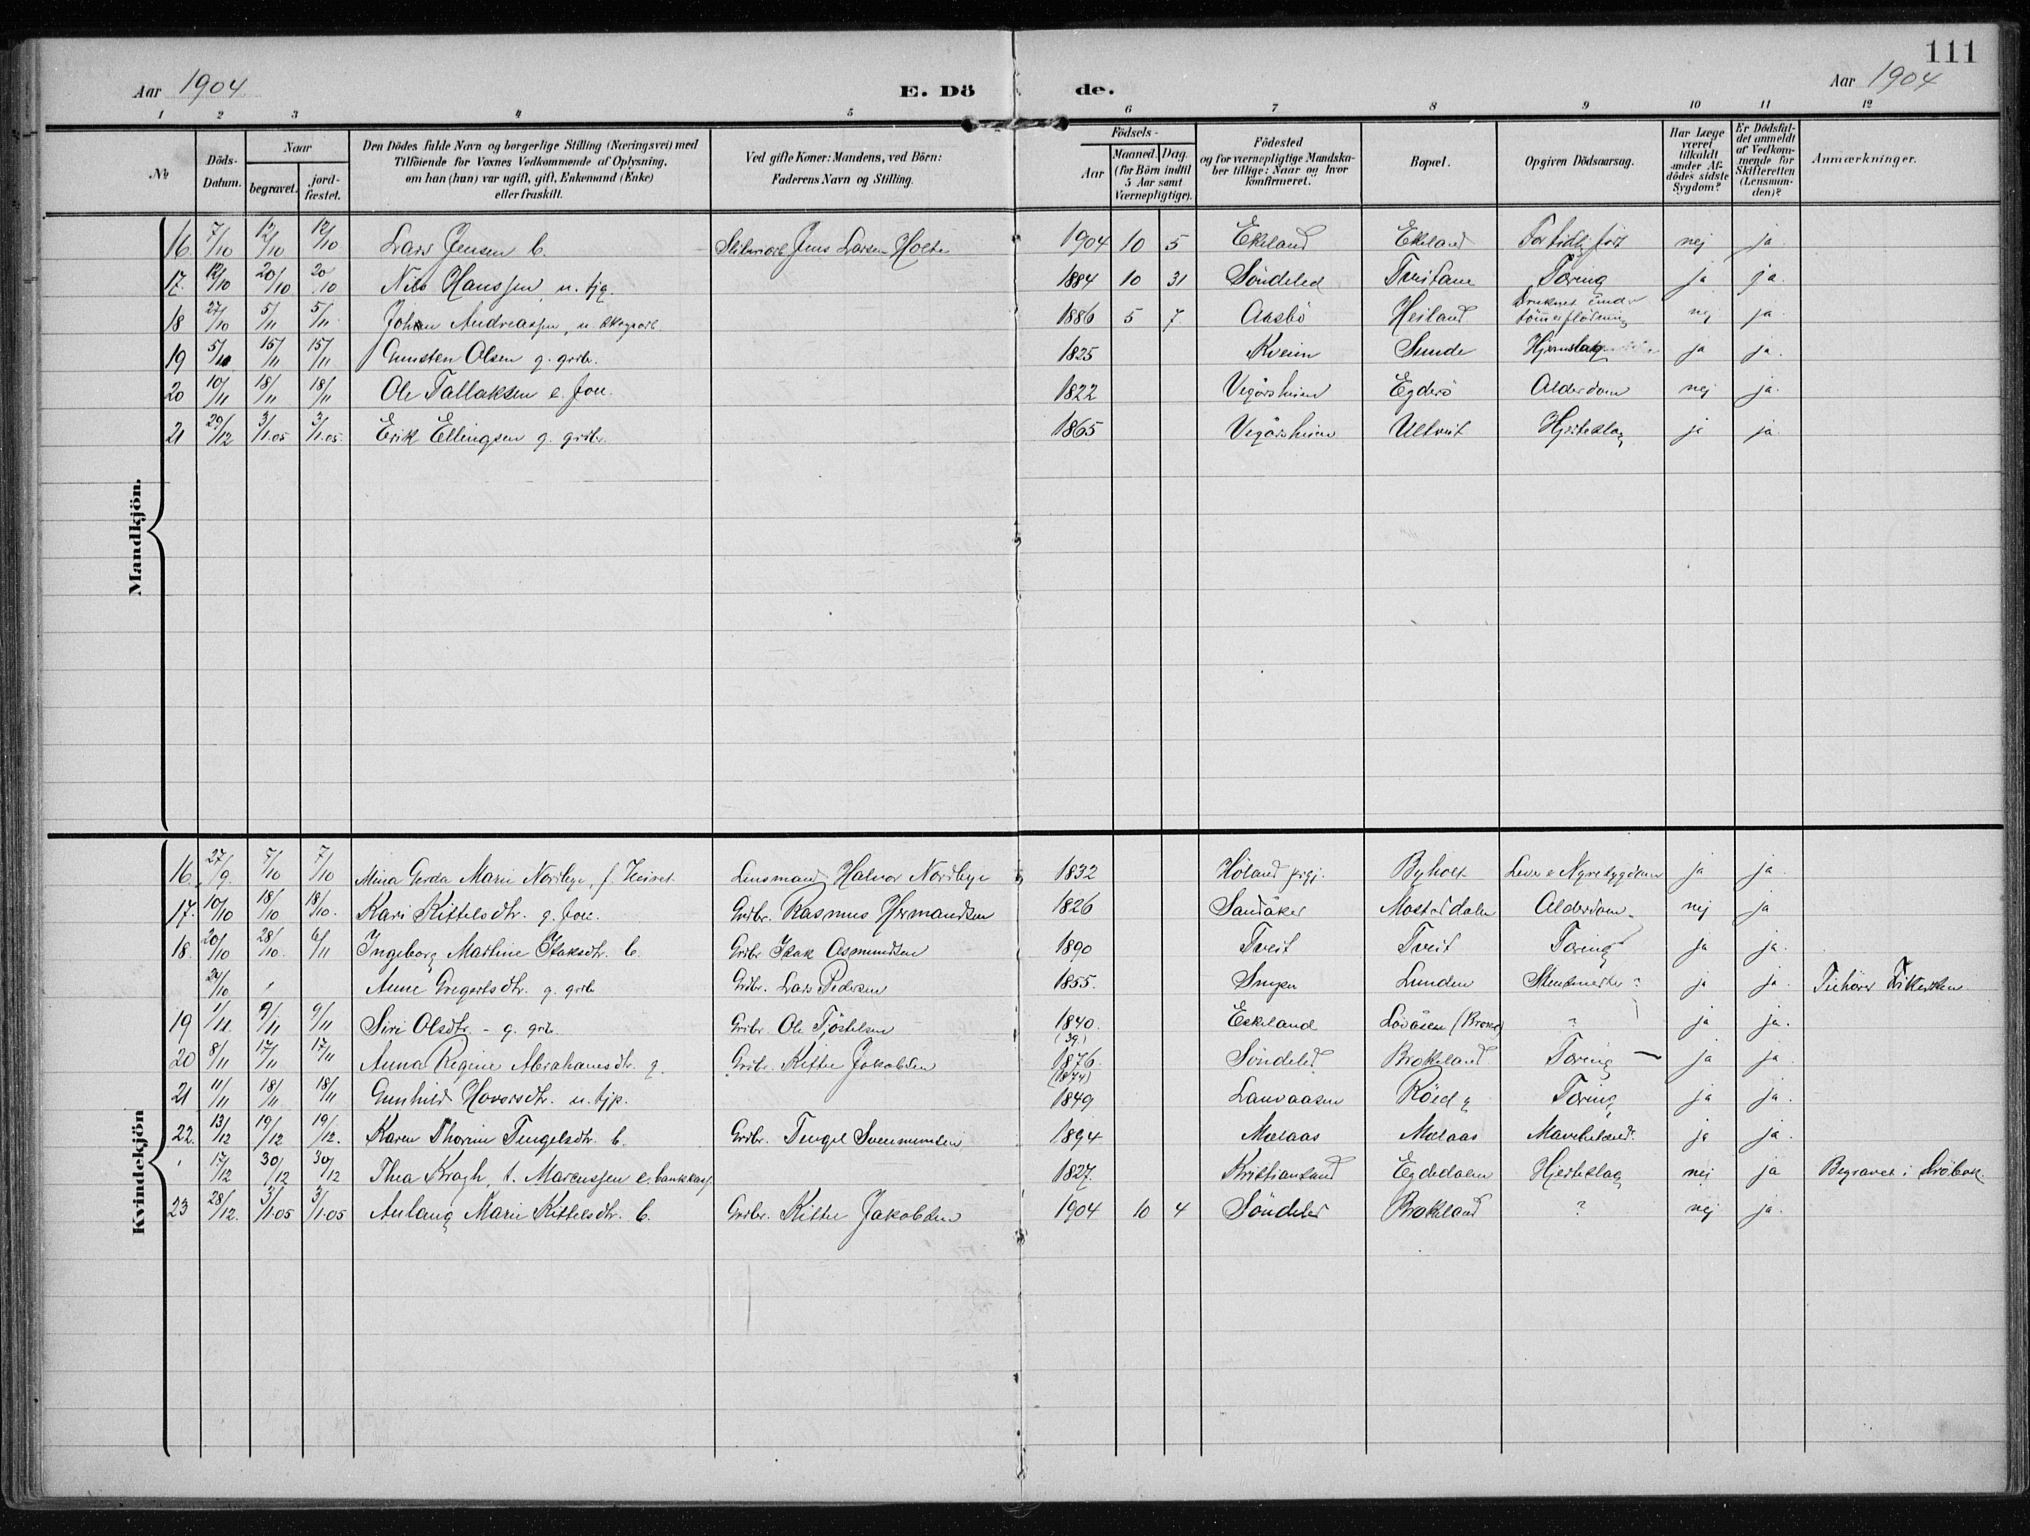 111
Aar 1904 E. Dö de. Aar 1904
1 2 3 4 5 6 7 8 9 10 11 12
No
Döds-Datum.
Naar
begravet.
jord-fæstet.
Den Dödes fulde Navn og borgerlige Stilling (Næringsvei) med
Tilföiende for Voxnes Vedkommende af Oplysning,
om han (hun) var ugift, gift, Enkemand (Enke)
eller fraskilt.
Ved gifte Koner: Mandens, ved Börn:
Faderens Navn og Stilling.
Födsels-
Aar
Maaned. Dag.
(for Börn indtil
5 Aar samt
Værnepligtige).
Födested
og for værnepligtige Mandska-
ber tillige: Naar og hvor
konfirmeret.
Bopæl.
Opgiven Dödsaarsag.
Har Læge
været
tilkaldt
under Af-
dödes sidste
Sygdom?
Er Dödsfal-
det anmeldt
af Vedkom-
mende for
Skifteretten
(Lensman-
den)?
Anmærkninger.
Mandkjön.
16 7/10 12/10 12/10 Lars Jensen b. Jens Larsen Holte 1904 10 5 Ekeland Ekeland For tidlig født nej ja
17. 12/10 20/10 20/10 Nils Hanssen, u. tjg. 1884 10 31 Söndeled Tveitane Tæring ja ja.
18 27/10 5/11 5/11 Johan Andreassen, u. skogsarb. 1886 5 7 Aasbö Heiland Druknet under tömmerflödning nej ja.
19 5/11 15/11 15/11 Gunsten Olsen g. grdb. 1825 Kveim Sunde ja ja.
20 10/11 18/11 18/11 Ole Tallaksen e. fou. 1822 Vegårsheien Egderö Alderdom nej ja.
21 29/12 3/1.05 3/1.05. Erik Ellingsen g. grdb. 1865 Vegårsheien Ulltveit Hjerteslag ja ja.
Kvindekjön
16. 27/9. 7/10 7/10 Mina Gerda Marie Nordbye, f. Lensmand Halvor Nordbye 1832 Höland prgj. Byholt Lever & Nyresygdom ja ja.
17. 10/10 18/10 18/10. Kari Kittelsdtr. g. fou. Grdbr. Rasmus Hermandsen 1826 Sandåker Mostaddalen Alderdom. nej ja
18. 20/10 28/10. 6/11 Ingeborg Martine Isaksdtr. b. Grdbr Isak Osmundsen 1890 Tveit Tveit Tæring ja ja.
24/10 Anne Gregertsdtr. g. grdb Grdbr. Lars Pedersen 1855. Lunden ? ja ja. Tilhører Frikirken
19 1/11. 9/11 9/11 Siri Olsdtr. - g. grb. Grdbr. Ole Tjöstelsen 1840. (39.) Eskeland Lövåsen ? ja ja.
20 8/11 17/11 17/11 Anna Regine Abrahamsdtr. g. Grdbr. Kittel Jakobsen 1876. (1874) Söndeled Brokeland Tæring ja ja.
21 11/11 18/11 18/11 Gunhild Hovorsdtr. u. tjp. 1849 Lauvaasen Röed Tæring ja ja.
22. 13/12 19/12 19/12. Karen Thorine Tengelsdtr. b. Grdbr. Tengel Svenumsen 1894 Mælaas Mælaas ja ja.
17/12 30/12 30/12 Thea Kragh, f. Marcussen e. bankkass. 1827. Kristiansand Egdedalen Hjerteslag nej ja Begravet i Dröbak.
23 28/12. 3/1.05 3/1.05 Aslaug Marie Kittelsdtr. b. Grdbr. Kittel Jakobsen 1904 10 4 Söndeled Brokeland ? nej ja.